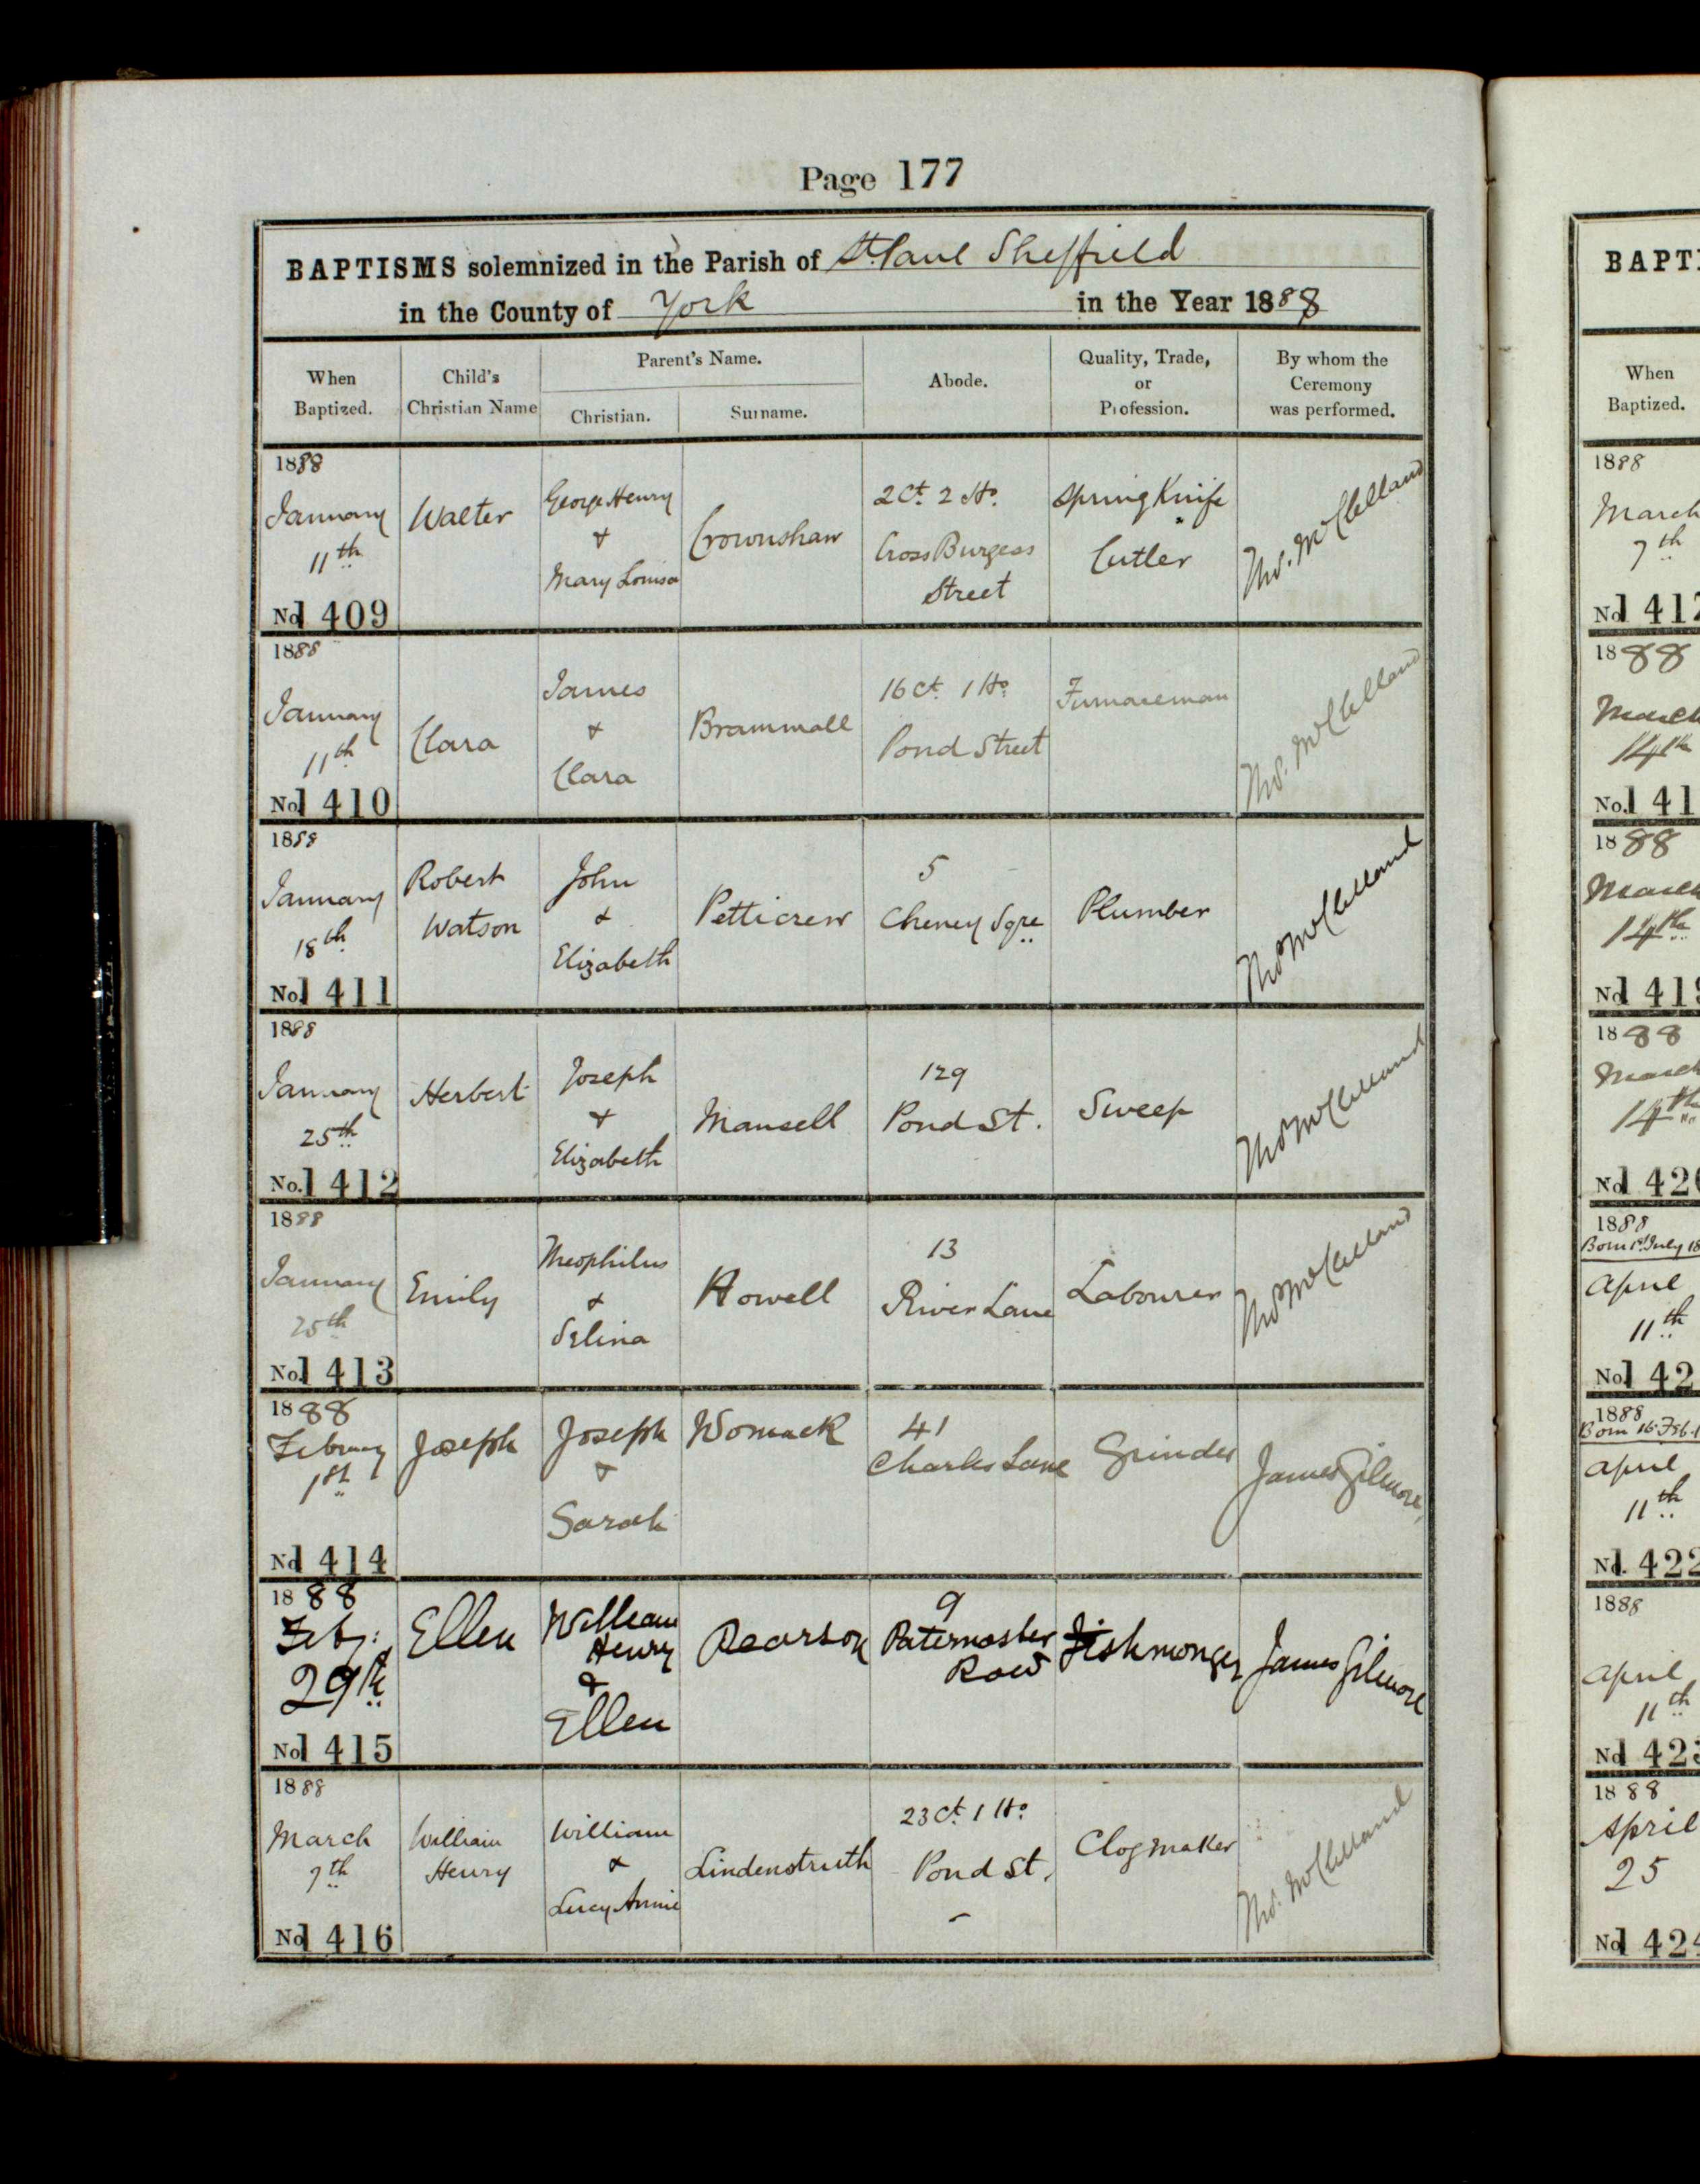 Page 177
BAPTISMS solemnized in the Parish of St. Paul Sheffield
in the County of York in the Year 1888
When Baptized.
Child's Christian Name
Parent's Name.
Christian.
Surname.
Abode.
Quality, Trade, or Profession.
By whom the Ceremony was performed.
1888
January
11th
No 1409
Walter
George Henry
&
Mary Louisa
Crownshaw
2 Ct. 2 Ho.
Cross Burgess
Street
Spring Knife
Cutler
Thos. McClelland
1888
January
11th
No. 1410
Clara
James
&
Clara
Brammall
16 Ct. 1 Ho.
Pond Street
Furnaceman
Thos. McClelland
1888
January
18th
No. 1411
Robert
Watson
John
&
Elizabeth
Petticrew
5
Cheney Sqre
Plumber
Thos McClelland
1888
January
25th
No. 1412
Herbert
Joseph
&
Elizabeth
Mansell
129
Pond St.
Sweep
Thos McClelland
1888
January
25th
No. 1413
Emily
Theophilus
&
Selina
Howell
13
River Lane
Labourer
Thos McClelland
1888
February
1st
No 1414
Joseph
Joseph
&
Sarah
Womack
41
Charles Lane
Grinder
James Gilmore
1888
Feby:
29th
No 1415
Ellen
William
Henry
&
Ellen
Pearson
9
Paternoster
Row
Fishmonger
James Gilmore
1888
March
7th
No 1416
William
Henry
William
&
Lucy Annie
Lindenstruth
23 Ct. 1 Ho.
Pond St.
Clogmaker
Thos. McClelland
BAPTI
When
Baptized.
1888
March
7th
No 417
1888
March
14th
No. 141
1888
March
14th
No 1419
1888
March
14th
No 1420
1888
Born 1st July 18
April
11th
No. 142
1888
Born 16 Feb. 1
April
11th
No. 1422
1888
April
11th
No 1423
1888
April
25
No 1424